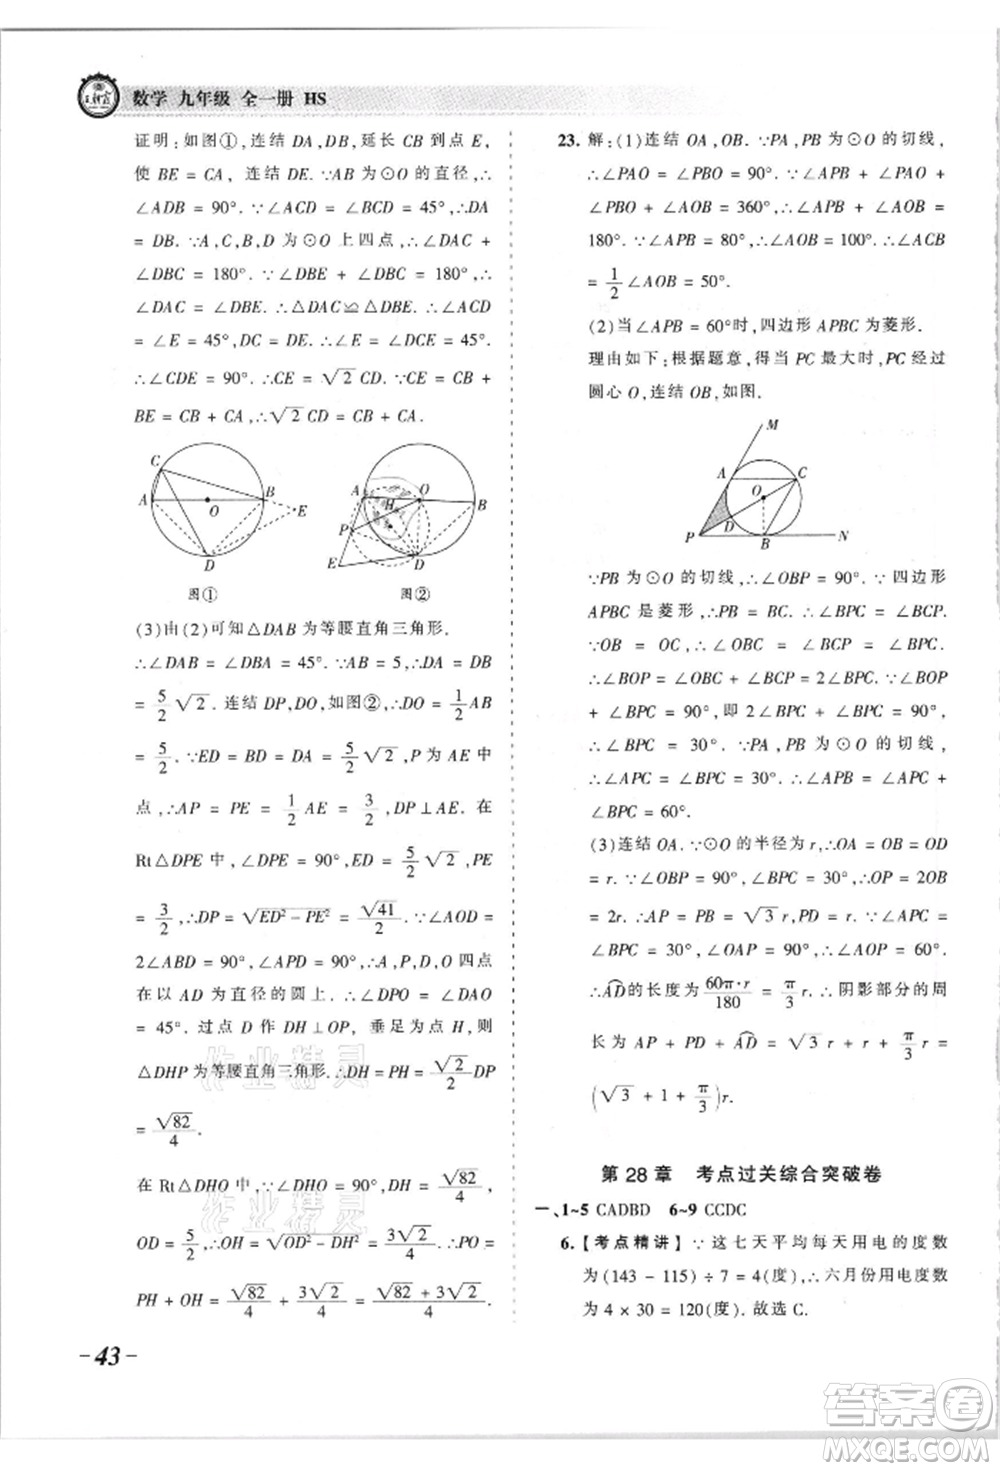 王朝霞
数学 九年级 全一册 HS
证明:如图①,连结 DA,DB,延长 CB 到点 E,
使 BE = CA, 连结 DE. ∵AB 为⊙O 的直径,∴
∠ADB = 90°. ∵∠ACD = ∠BCD = 45°,∴DA
= DB. ∵A,C,B,D 为⊙O 上四点,∴∠DAC +
∠DBC = 180°. ∵∠DBE + ∠DBC = 180°,∴
∠DAC = ∠DBE. ∴△DAC≌△DBE. ∴∠ACD
= ∠E = 45°,DC = DE. ∵∠DCE = ∠E = 45°.
∴∠CDE = 90°. ∴CE = √2 CD. ∵CE = CB +
BE = CB + CA,∴√2 CD = CB + CA.
C
A
O
B
E
D
图①
A
O
B
H
P
E
D
图②
(3)由(2)可知△DAB 为等腰直角三角形.
∴∠DAB = ∠DBA = 45°. ∵AB = 5,∴DA = DB
= 5/2 √2. 连结 DP,DO,如图②,∴DO = 1/2 AB
= 5/2. ∵ED = BD = DA = 5/2 √2,P 为 AE 中
点,∴AP = PE = 1/2 AE = 3/2,DP⊥AE. 在
Rt△DPE 中,∠DPE = 90°,ED = 5/2 √2,PE
= 3/2,∴DP = √(ED² − PE²) = √41/2. ∵∠AOD =
2∠ABD = 90° = ∠APD,∴A,P,O,D 四点
在以 AD 为直径的圆上. ∴∠DPO = ∠DAO
= 45°. 过点 D 作 DH⊥OP, 垂足为点 H,则
△DHP 为等腰直角三角形. ∴DH = PH = √2/2 DP
= √82/4.
在 Rt△DHO 中,∠DHO = 90°,DH = √82/4,
OD = 5/2,∴OH = √(OD² − DH²) = 3√2/4. ∴PO =
PH + OH = √82/4 + 3√2/4 = (√82 + 3√2)/4.
23. 解:(1)连结 OA,OB. ∵PA,PB 为⊙O 的切线,
∴∠PAO = ∠PBO = 90°. ∵∠APB + ∠PAO +
∠PBO + ∠AOB = 360°,∴∠APB + ∠AOB =
180°. ∵∠APB = 80°,∴∠AOB = 100°. ∴∠ACB
= 1/2 ∠AOB = 50°.
(2)当∠APB = 60°时,四边形 APBC 为菱形.
理由如下:根据题意,得当 PC 最大时,PC 经过
圆心 O,连结 OB,如图.
M
A
C
O
D
P
B
N
∵PB 为⊙O 的切线,∴∠OBP = 90°. ∵四边形
APBC 是菱形,∴PB = BC. ∴∠BPC = ∠BCP.
∵OB = OC,∴∠OBC = ∠BCP = ∠BPC.
∴∠BOP = ∠OBC + ∠BCP = 2∠BPC. ∴∠BOP
+ ∠BPC = 90°,即 2∠BPC + ∠BPC = 90°.
∴∠BPC = 30°. ∵PA,PB 为⊙O 的切线,
∴∠APC = ∠BPC = 30°. ∴∠APB = ∠APC +
∠BPC = 60°.
(3)连结 OA. ∵⊙O 的半径为 r,∴OA = OB = OD
= r. ∵∠OBP = 90°,∠BPC = 30°,∴OP = 2OB
= 2r. ∴PA = PB = √3 r,PD = r. ∵∠APC =
∠BPC = 30°,∠OAP = 90°,∴∠AOP = 60°.
∴A͡D的长度为 60π·r/180 = π/3 r. ∴阴影部分的周
长为 AP + PD + A͡D = √3 r + r + π/3 r =
(√3 + 1 + π/3)r.
第 28 章 考点过关综合突破卷
一、1~5 CADBD 6~9 CCDC
6.【考点精讲】∵这七天平均每天用电的度数
为(143 − 115) ÷ 7 = 4(度),∴六月份用电度数
为 4 × 30 = 120(度). 故选 C.
作业精灵
作业精灵
- 43 -
答案圈
MXQE.COM